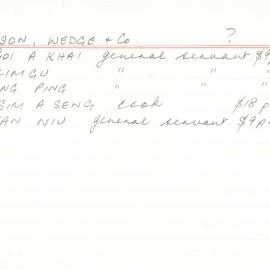 SON, WEDGE & Co. ?
OI A KHAI general servant $9
LIM GU " " "
NG PING " " "
SIM A SENG cook $18 p
AN NIU general servant $9 p